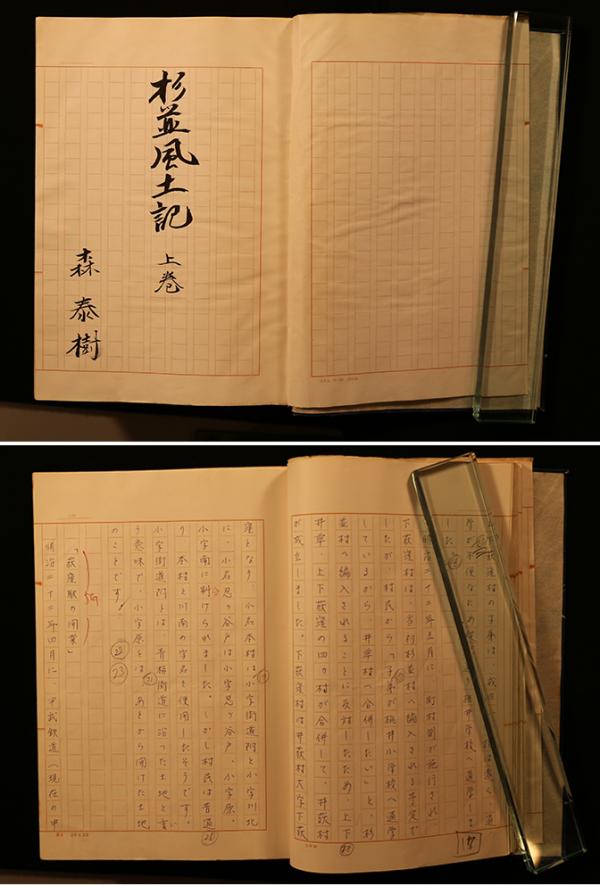 杉並風土記
上巻
森泰樹
下荻窪村は、当初杉並村へ編入される予定で
したが、村民から「子弟が桃井小学校へ通学
しているから、井草村へ合併したい」と、杉
並村へ編入されることに反対したため、上下
井草、上下荻窪の四カ村が合併して、井荻村
が成立しました。下荻窪村は井荻村大字下荻
窪となり、小名本村は小字街道附と小字川北
に、小名忍ヶ谷戸は小字忍ヶ谷戸、小字原、
小字南に別けられました。しかし村民は昔通
り、本村と川南の字名を使用したそうです。
小字街道附とは、青梅街道に沿った土地と言
う意味で、小字原とは、あとから開けた土地
のことです。
「荻窪駅の開業」
明治二十二年四月に、甲武鉄道(現在の中